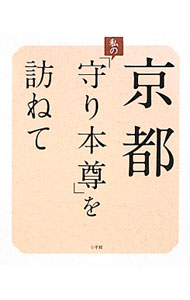 京都
私の
「守り本尊」を
訪ねて
小学館